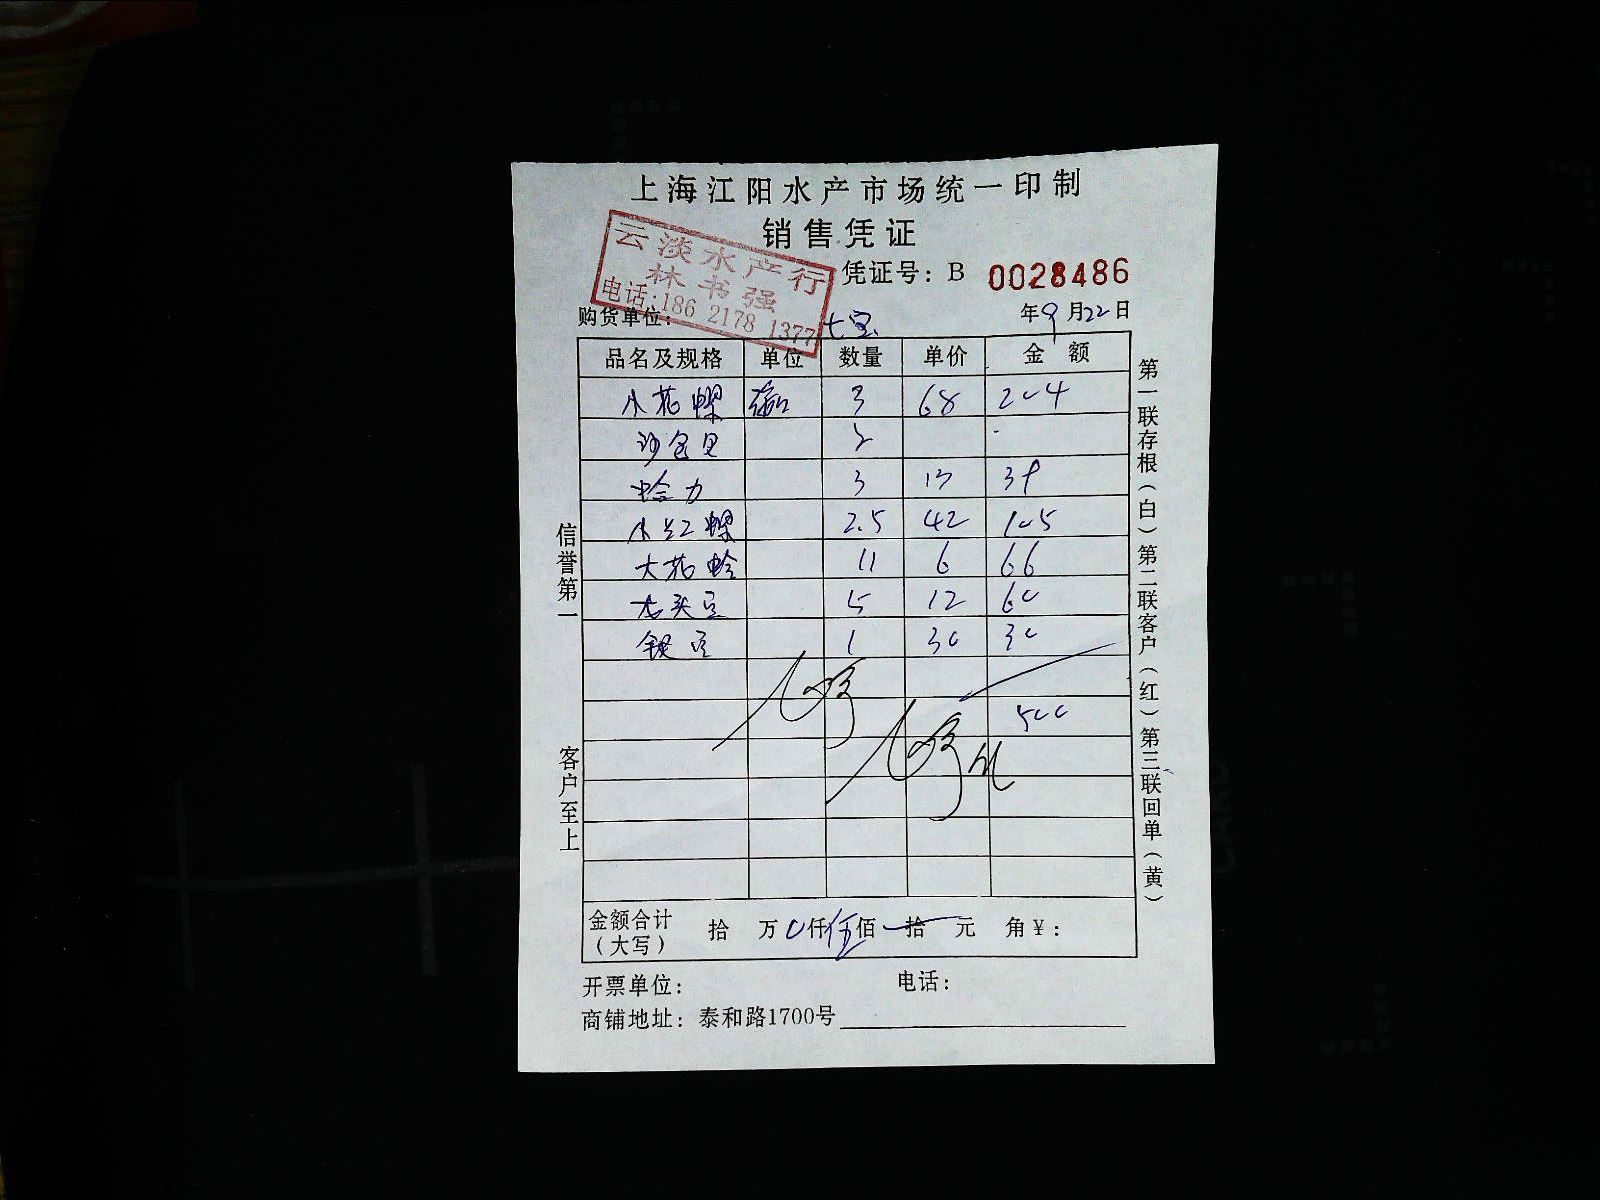 上海江阳水产市场统一印制
销售凭证
云淡水产行
林书强
电话:186 2178 1377
凭证号: B 0028486
购货单位: 七宝 年9月22日
品名及规格 单位 数量 单价 金额
小花螺 3 68 204
沙包贝 2
蛤力 3 13 39
小红螺 2.5 42 105
大花蛤 11 6 66
石头豆 5 12 60
银豆 1 30 30
500
金额合计(大写) 拾 万 0仟 伍佰 拾 元 角¥:
开票单位: 电话:
商铺地址: 泰和路1700号
信誉第一 客户至上
第一联存根(白) 第二联客户(红) 第三联回单(黄)